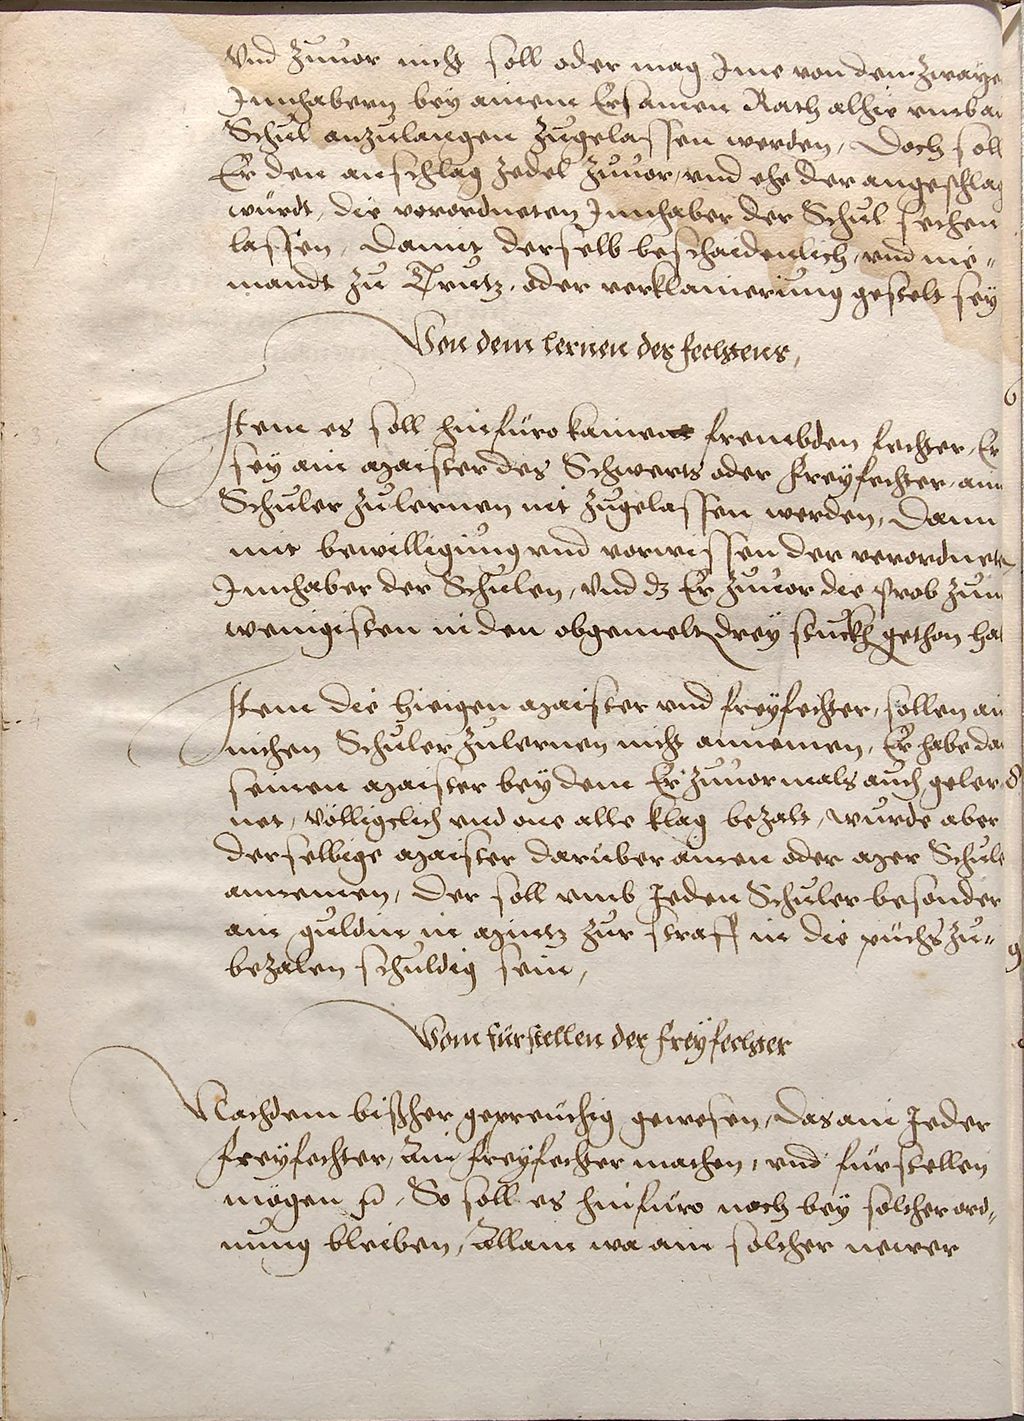 Vnd zuuor nicht soll oder mag Ime von den zwaye
Innhabern bey ainem Ersamen Rath alhie vmb a
Schul anzulangen zugelassen werden, Doch soll
Er den anschlag zedel zuuor, vnd ehe der angeschlag
würdt, die verordneten Innhaber der Schul sechen
lassen, Damit derselb beschaidenlich, vnd nie-
mandt zu Trutz, oder verklainerung gestelt sey
Von dem lernen des fechtens,
Item es soll hinfüro kainem frembden fechter, Er
sey ain maister des Schwerts oder Freyfechter, ain
Schuler zulernen nit zugelassen werden, Dann
mit bewilligung vnd vorwissen der verordnete
Innhaber der Schulen, Vnd dz Er zuuor die prob zum
wenigisten in den obgemelt drey stuckh gethon ha
Item die hieigen maister vnd freyfechter, sollen ai
nichen Schuler zulernen nicht annemen, Er habe da
seinen maister bey dem Er zuuormals auch geler
net, völligclich vnd one alle klag bezalt, wurde aber
derselbige maister darüber ainen oder mer Schule
annemen, Der soll vmb Jeden Schuler besonder
ain guldin in müntz zur straff in die püchs zu-
bezalen schuldig sein,
Vom fürstellen der freyfechter
Nachdem bißher gepreüchig gewesen, das ain Jeder
freyfechter, Ain freyfechter machen, vnd fürstellen
mögen, So soll es hinfüro noch bey solcher ord-
nung bleiben, Allain wa ain solcher newer